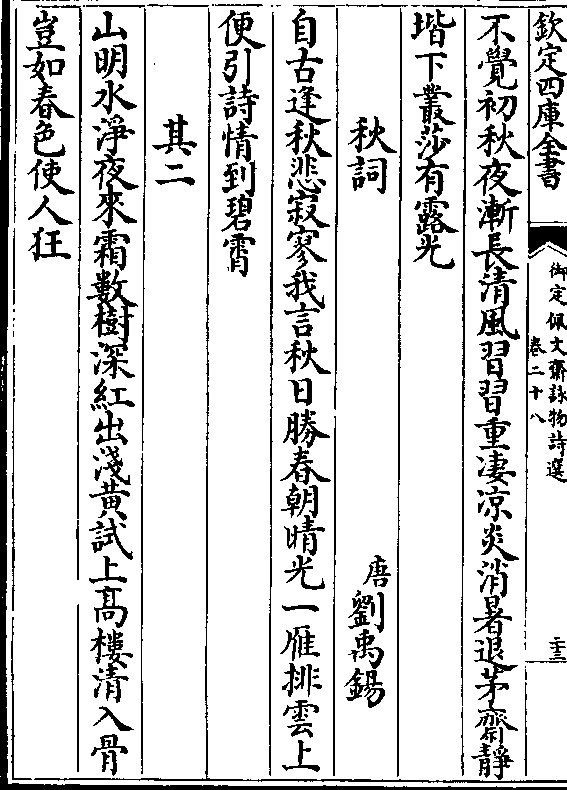 欽定四庫全書
御定佩文齋詠物詩選
卷二十八
二十三
不覺初秋夜漸長清風習習重凄凉炎消暑退茅齋靜
堦下叢莎有露光
秋詞
唐劉禹錫
自古逢秋悲寂寥我言秋日勝春朝晴光一雁排雲上
便引詩情到碧霄
其二
山明水淨夜來霜數樹深紅出淺黄試上髙樓清入骨
豈如春色使人狂